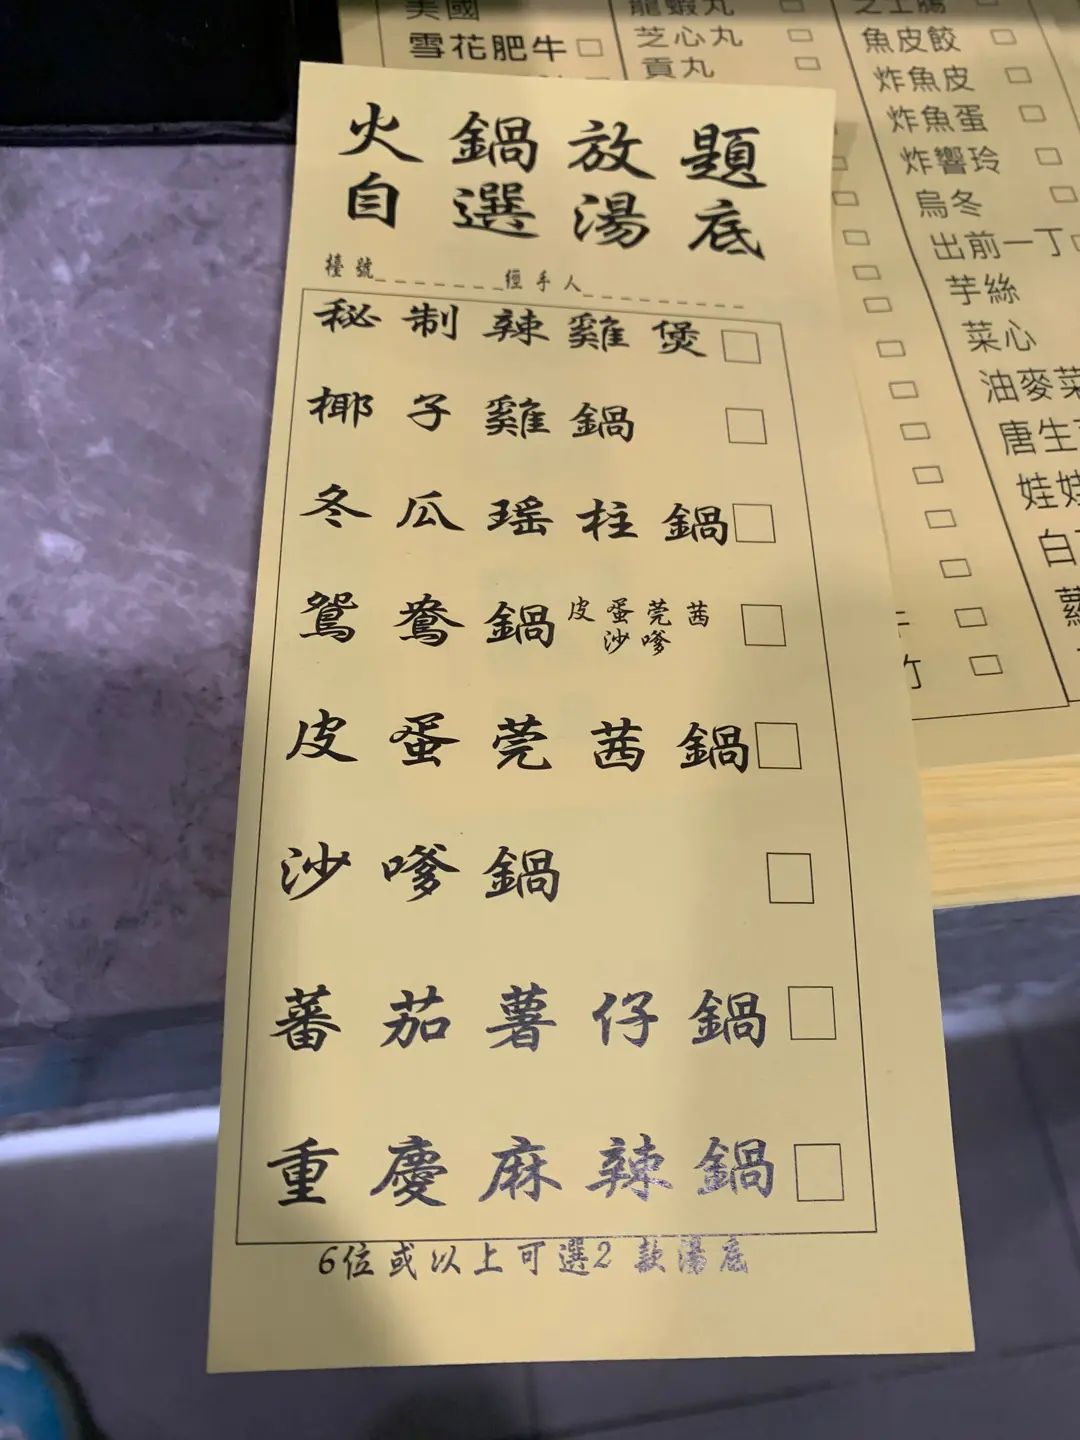 火鍋放題
自選湯底
檯號_______經手人_________
秘制辣雞煲
椰子雞鍋
冬瓜瑤柱鍋
鴛鴦鍋 皮蛋莞茜
沙嗲
皮蛋莞茜鍋
沙嗲鍋
蕃茄薯仔鍋
重慶麻辣鍋
6位或以上可選2款湯底
美國
雪花肥牛
龍蝦丸
芝心丸
貢丸
芝士腸
魚皮餃
炸魚皮
炸魚蛋
炸響玲
烏冬
出前一丁
芋絲
菜心
油麥菜
唐生
娃娃
白
竹